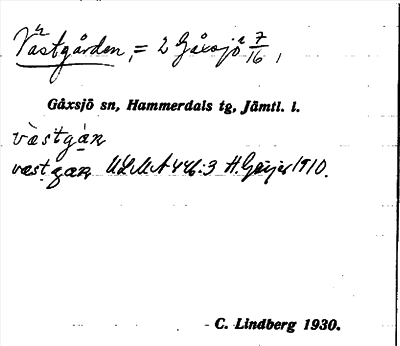 Västgården, = 2 Gåxsjö 7/16,
Gåxsjö sn, Hammerdals tg, Jämtl. l.
västgan
væstgan ULMA 446:3 H. Geijer 1910.
C. Lindberg 1930.